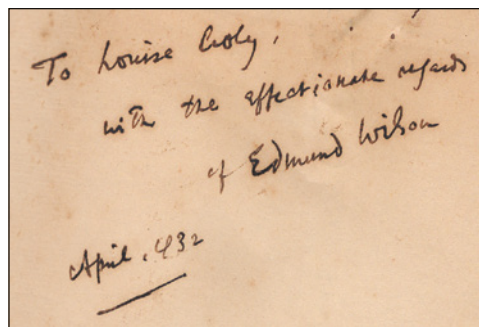 To Louise
with the affectionate regards
of Edmund Wilson
April, 1932